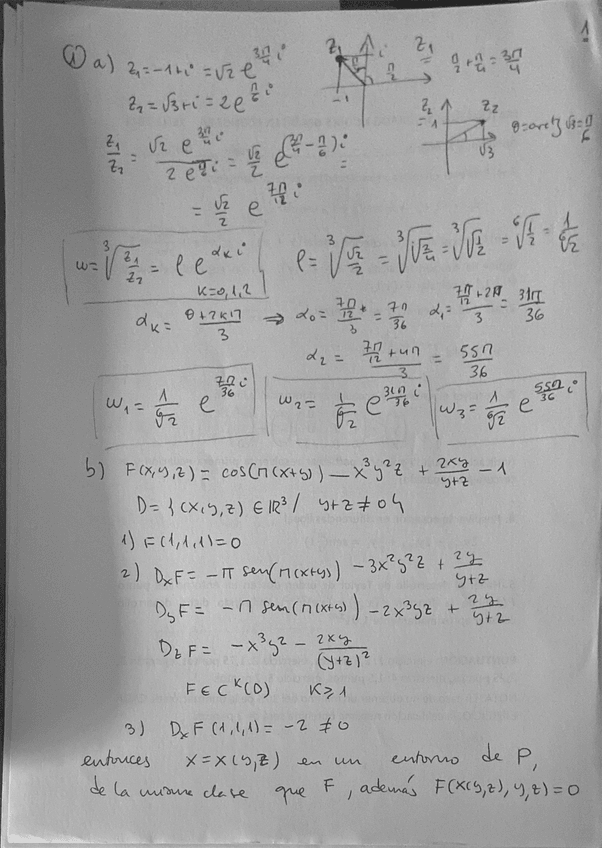 1
① a) z₁ = -1+i = √2 e^{3π/4 i}
z₁ i π/4 π/2 -1 z₁ π/2 + π/4 = 3π/4
z₂ = √3+i = 2 e^{π/6 i}
z₂ 1 z₂ √3 θ = arctg √3 = π/6
z₁/z₂ = √2 e^{3π/4 i} / 2 e^{π/6 i} = √2/2 e^{(3π/4 - π/6) i} =
= √2/2 e^{7π/12 i}
w = ∛(z₁/z₂) = ρ e^{α_K i} K=0,1,2
ρ = ∛(√2/2) = ∛(√(2/4)) = ∛(√(1/2)) = ⁶√(1/2) = 1/⁶√2
α_K = (θ+2Kπ)/3 ⇒ α₀ = (7π/12)/3 = 7π/36 α₁ = (7π/12 + 2π)/3 = 31π/36
α₂ = (7π/12 + 4π)/3 = 55π/36
w₁ = 1/⁶√2 e^{7π/36 i} w₂ = 1/⁶√2 e^{31π/36 i} w₃ = 1/⁶√2 e^{55π/36 i}
b) F(x,y,z) = cos(π(x+y)) - x³y²z + 2xy/(y+z) - 1
D = {(x,y,z) ∈ ℝ³ / y+z ≠ 0}
1) F(1,1,1) = 0
2) DₓF = -π sen(π(x+y)) - 3x²y²z + 2y/(y+z)
D_yF = -π sen(π(x+y)) - 2x³yz + 2z/(y+z)
D_zF = -x³y² - 2xy/(y+z)²
F ∈ C^K(D) K≥1
3) DₓF(1,1,1) = -2 ≠ 0
entonces x = x(y,z) en un entorno de P,
de la misma clase que F, además F(x(y,z),y,z)=0